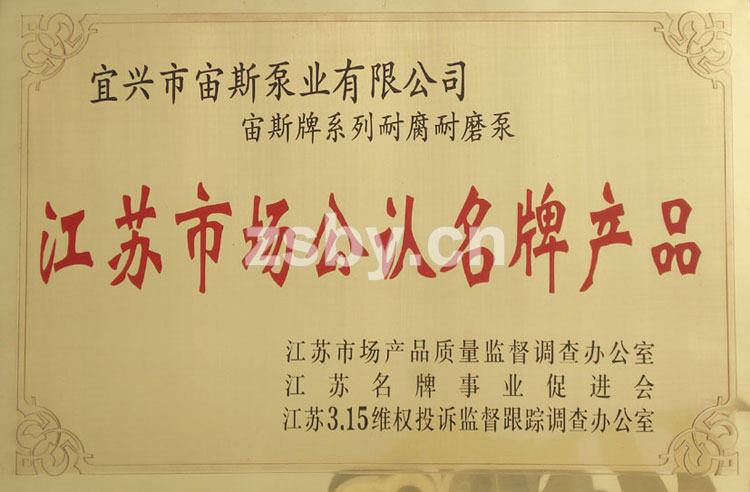 宜兴市宙斯泵业有限公司
宙斯牌系列耐腐耐磨泵
江苏市场公认名牌产品
zsby.cn
江苏市场产品质量监督调查办公室
江苏名牌事业促进会
江苏3.15维权投诉监督跟踪调查办公室